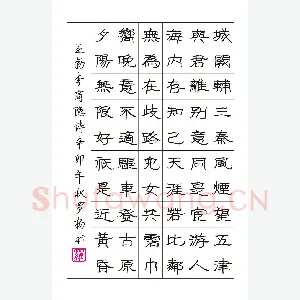 城闕輔三秦風煙望五津
與君離別意同是宦游人
海內存知己天涯若比鄰
無為在歧路兒女共霑巾
嚮晚意不適驅車登古原
夕陽無限好祇是近黃昏
王勃李商隱詩辛卯年秋羅楊書
Shufawang.CN